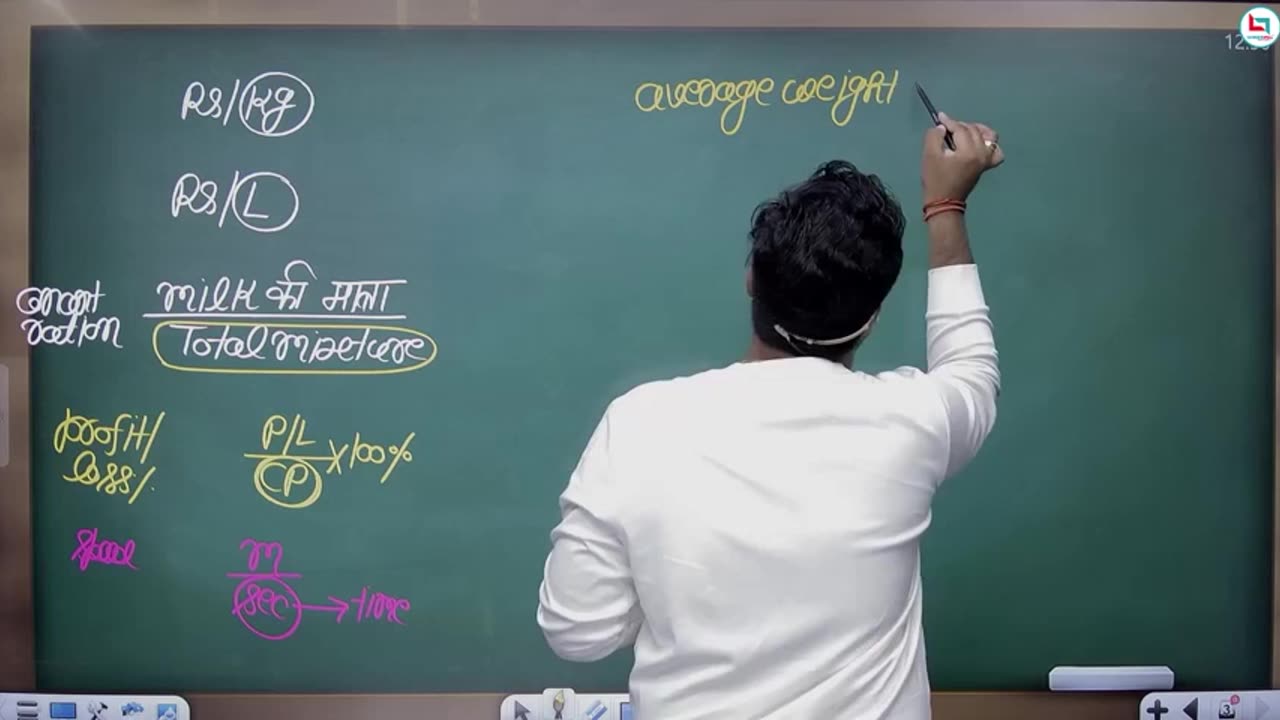 RS/Kg
RS/L
milk की मात्रा
Total mixture
profit/
loss%
P/L
CP
×100%
speed
m
sec → time
average weight
3